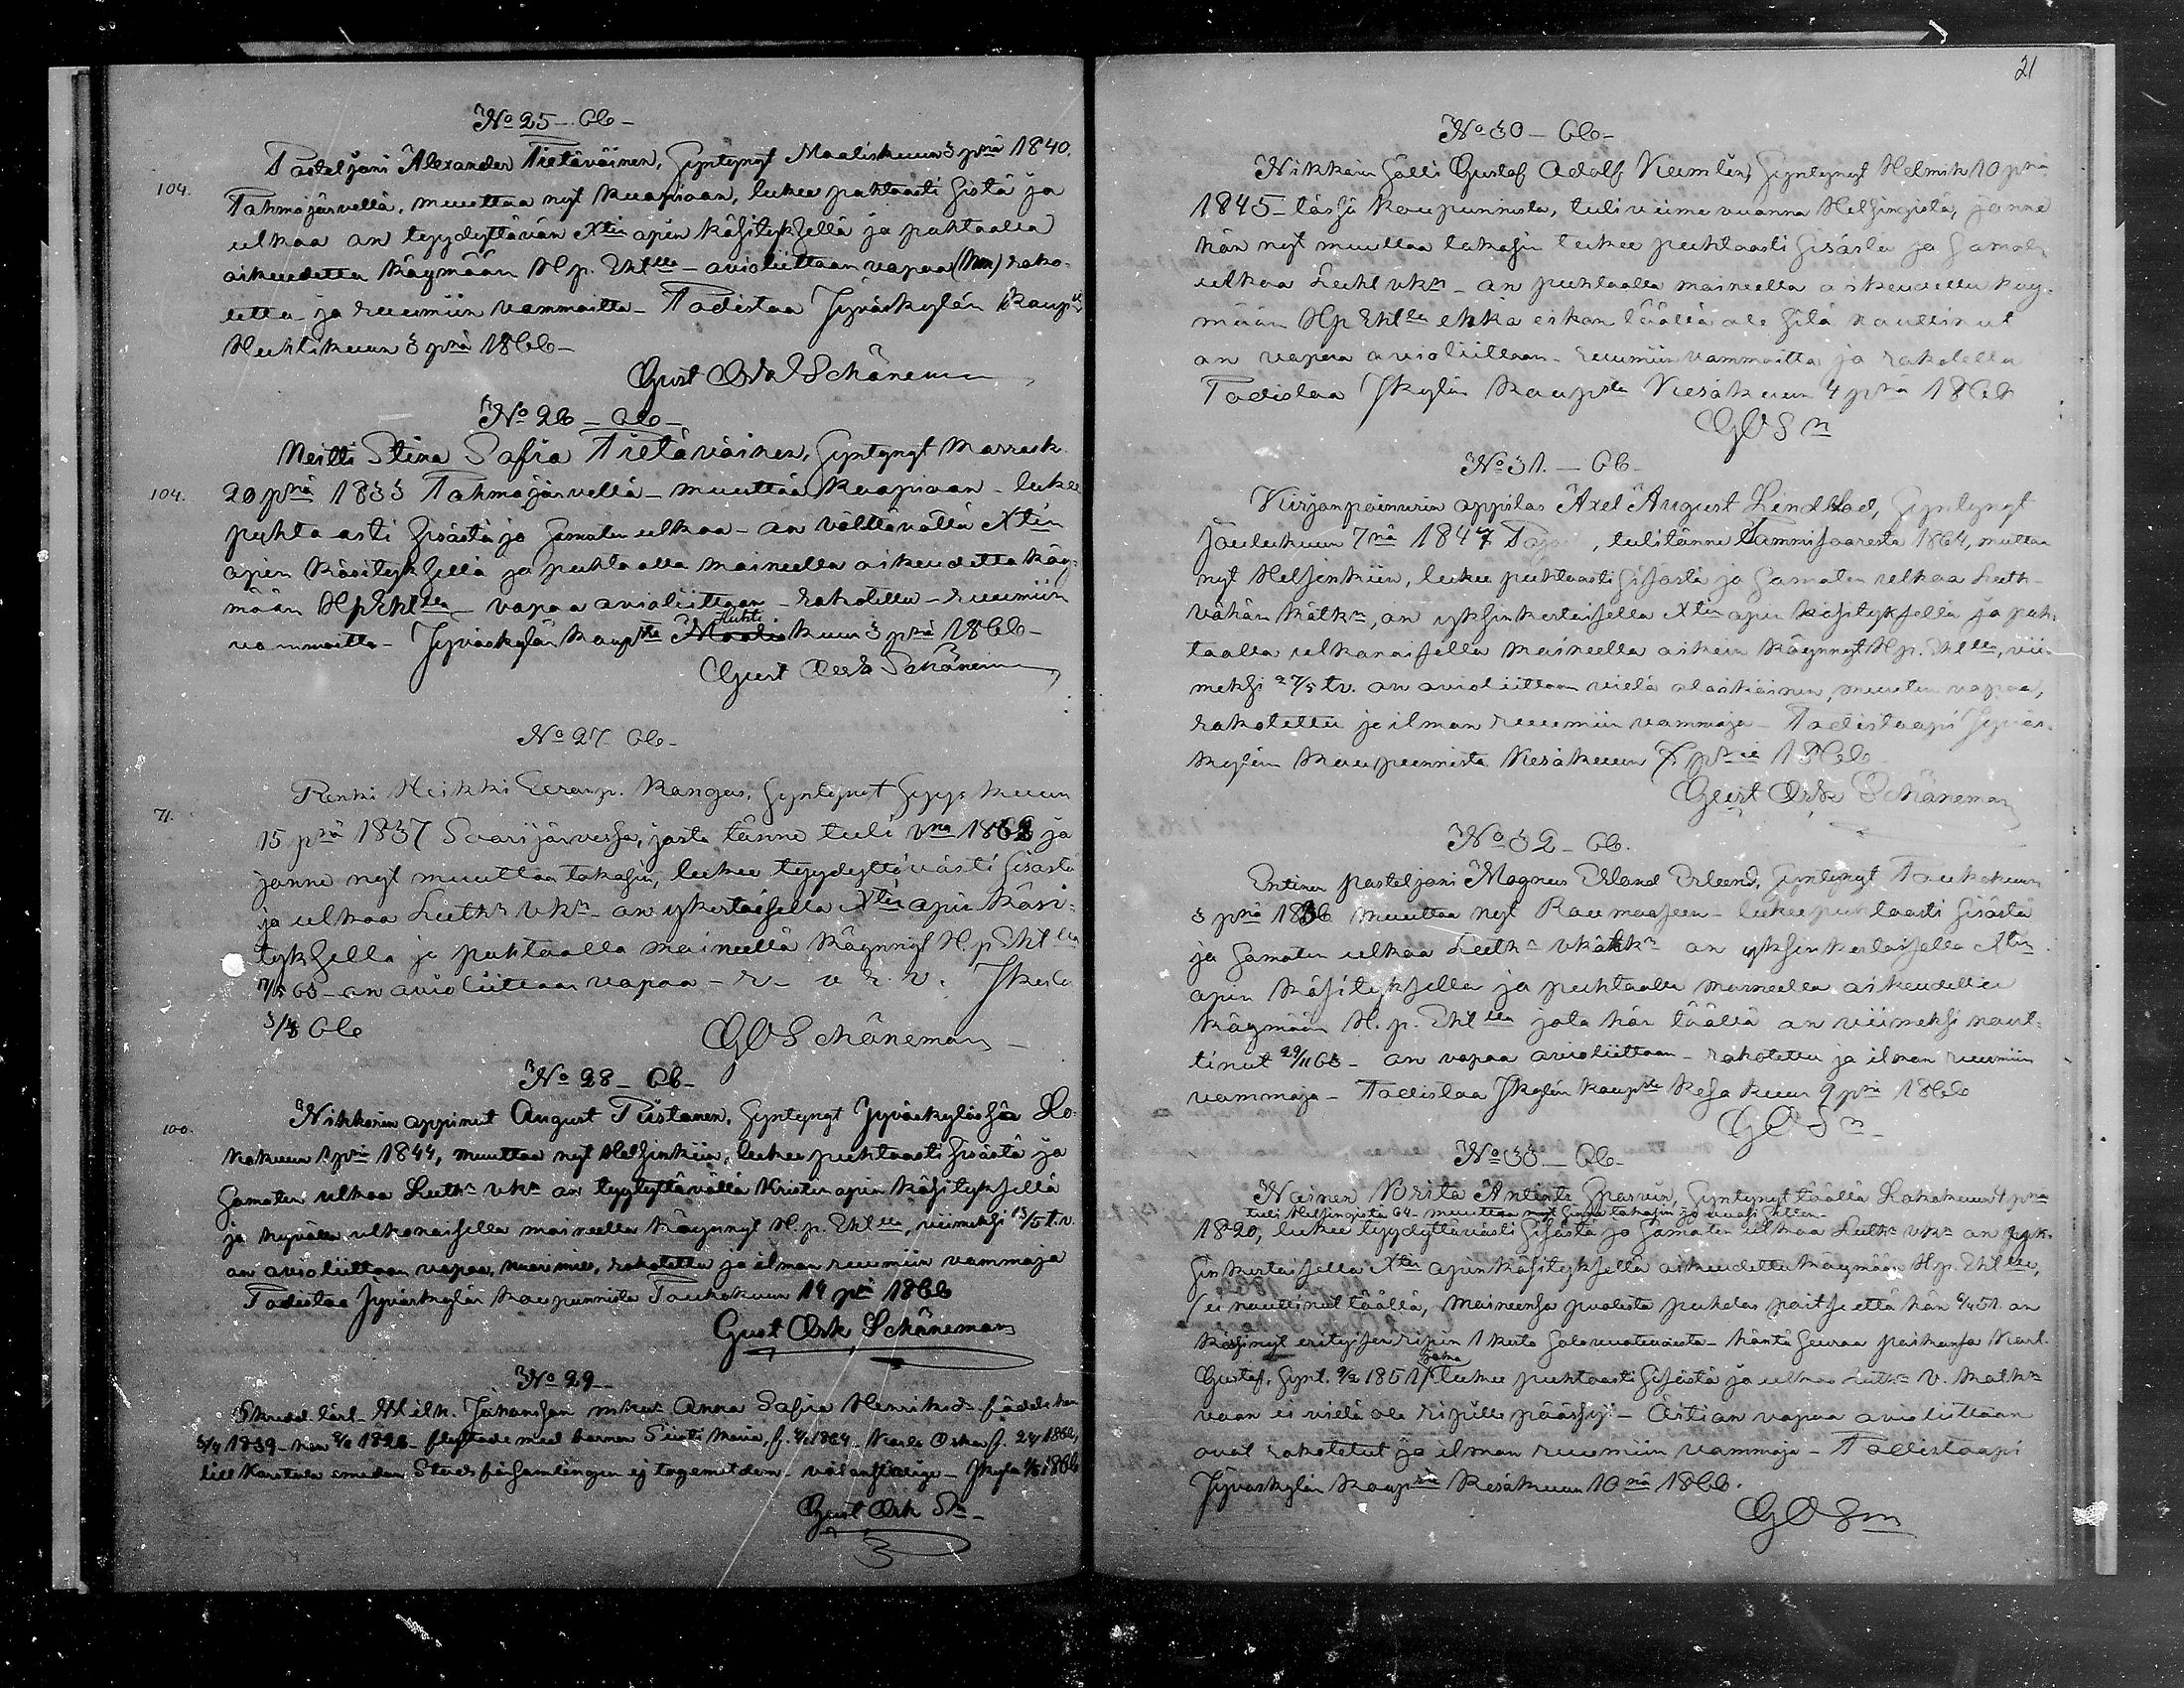 21
No 25 - 66 -
Posteljoni Alexander Tietäväinen, syntynyt Maaliskuun 3 pnä 1840.
104.
Tohmajärvellä, muuttaa nyt Kuopioon, lukee puhtaasti sistä ja
ulkoa on tyydyttävän Xtin opin käsityksellä ja puhtaalla
oikeudetta käymään H.p. Ehtlla - avioliittoon vapaa roko-
tettu ja ruumiin vammoitta - Todistaa Jyväskylän Kaupsta
Huhtikuun 3 pnä 1866 -
Gust Osk Schöneman
No 26 - 66 -
Neitti Stina Sofia Tietäväinen, syntynyt Marrask.
104.
20 pnä 1833 Tohmajärvellä - muuttaa Kuopioon - lukee
puhtaasti sisästä ja samaten ulkoa - on välttävällä Xtin
opin käsityksellä ja puhtaalla maineella oikeudetta käy-
mään HpEhtlla - vapaa avioliittoon - rokotettu - ruumiin
vammoitta - Jyväskylän kaupsta Maalis Huhti kuun 3 pnä 1866 -
Gust Osk Schöneman
No 27 - 66 -
Renki Heikki Eeranp. Kangas, syntynyt Syys kuun
71.
15 pnä 1837 Saarijärvessä, josta tänne tuli vna 1862 ja
jonne nyt muuttaa takasin, lukee tyydyttävästi sisästä
ja ulkoa Luthn vkn - on ykertaisella Xtin opin käsi-
tyksellä ja puhtaalla maineella käynnyt H.pEhtlla
65 - on avioliittoon vapaa - r - u r. v.
66
GOSchöneman
No 28 - 66 -
Nikkarin oppinut August Piistonen, syntynyt Jyväskylässä Lo-
100.
kakuun 1 pnä 1844, muuttaa nyt Helsinkiin, lukee puhtaasti sisästä ja
samaten ulkoa Luthn vkn on tyytyttävällä Kristin opin käsityksellä
ja hyvällä ulkonaisella maineella käynnyt H.p. Ehtlla, viimeksi 13/5 t.v.
on avioliittoon vapaa, nuori mies, rokotettu ja ilman ruumiin vammoja
Todistaa Jyväskylän kaupunnista Toukokuun 14 pnä 1866
Gust Osk Schöneman
No 29 -
Skredd.lärl. Wilh. Johansson mhust Anna Sofia Henriksdr födde han
1839 - hon 1826 - flyttade med barnen Maria, f. 1864 - Karle Oskar f. 24/ 1866,
till Karstula emedan Stads församlingen ej tagemot dem - 1866
Gust Osk Sn -
No 30 - 66 -
Nikkarin sälli Gustaf Adolf Kumlin, syntynyt Helmik 10 pnä
1845 - tässä kaupunnista, tuli viime vuonna Helsingistä, jonne
hän nyt muuttaa takasin lukee puhtaasti sisästä ja samat-
ulkoa Luthl vkn - on puhtaalla maineella oikeudettu käy-
mään Hp Ehtlle ehkä ei hän täällä ole sitä nauttinut
on vapaa avioliittoon - ruumiin vammoitta ja rokotettu
Todistaa Jkylän kaupsta Kesäkuun 4 pnä 1866
GOSn
No 31. - 66 -
Kirjanpainurin oppilas Axel August Lindblad, syntynyt
Joulukuun 7nä 1847, tuli tänne Tammisaaresta 1864, muttaa
nyt Helsinkiin, lukee puhtaasti sisästä ja samaten ulkoa Luth-
vähän kätkn, on yksinkertaisella Xtin opin käsityksellä ja puh-
taalla ulkonaisella maineella oikein käynnyt H.p. Ehtlla, vii-
meksi 27/5 t.v. on avioliittoon vielä alaikäinen, muuten vapaa,
rokotettu ja ilman ruumiin vammoja - Todistaapi Jyväs-
kylän kaupunnista Kesäkuun pnä 1866
Gust Osk Schöneman
No 32 - 66.
Entinen posteljoni Magnus Erland Erlund, syntynyt Toukokuun
3 pnä 1836 muuttaa nyt Raumaaseen - lukee puhtaasti sisästä
ja samaten ulkoa Luthn vkätkn on yksinkertaisella Xtin
opin käsityksellä ja puhtaalla maineella oikeudettu
käymään H.p. Ehtlla jota hän täällä on viimeksi naut-
tinut 29/11 65 - on vapaa avioliittoon - rokotettu ja ilman ruumiin
vammoja - Todistaa Jkylän kaupsta Kesä kuun 9 pnä 1866
GOSn -
No 33 - 66 -
Nainen Brita Antintr, syntynyt täällä Lokakuun 4 pnä
tuli Helsingistä 64 - muuttaa nyt sinne takasin
1820, lukee tyydyttävästi sisästä ja samaten ulkoa Luthn vkn on yk-
sinkertaisella Xtin opin käsityksellä oikeudettu käymään H.p. Ehtlla,
ei nauttinut täällä, maineensa puolesta puhdas paitsi että hän on
kärsinyt erityisen ripin 1 kerta salavuoteudesta - häntä seuraa poikansa Karl
Gustaf, synt. 1851, joka lukee puhtaasti sisästä ja ulkoa Luthn v. kätkn
vaan ei vielä ole ripille päässyt - Äiti on vapaa avioliittoon
ovat rokotetut ja ilman ruumiin vammoja - Todistaapi
Jyväskylän kaupsta Kesäkuun 10 nä 1866.
GOSn